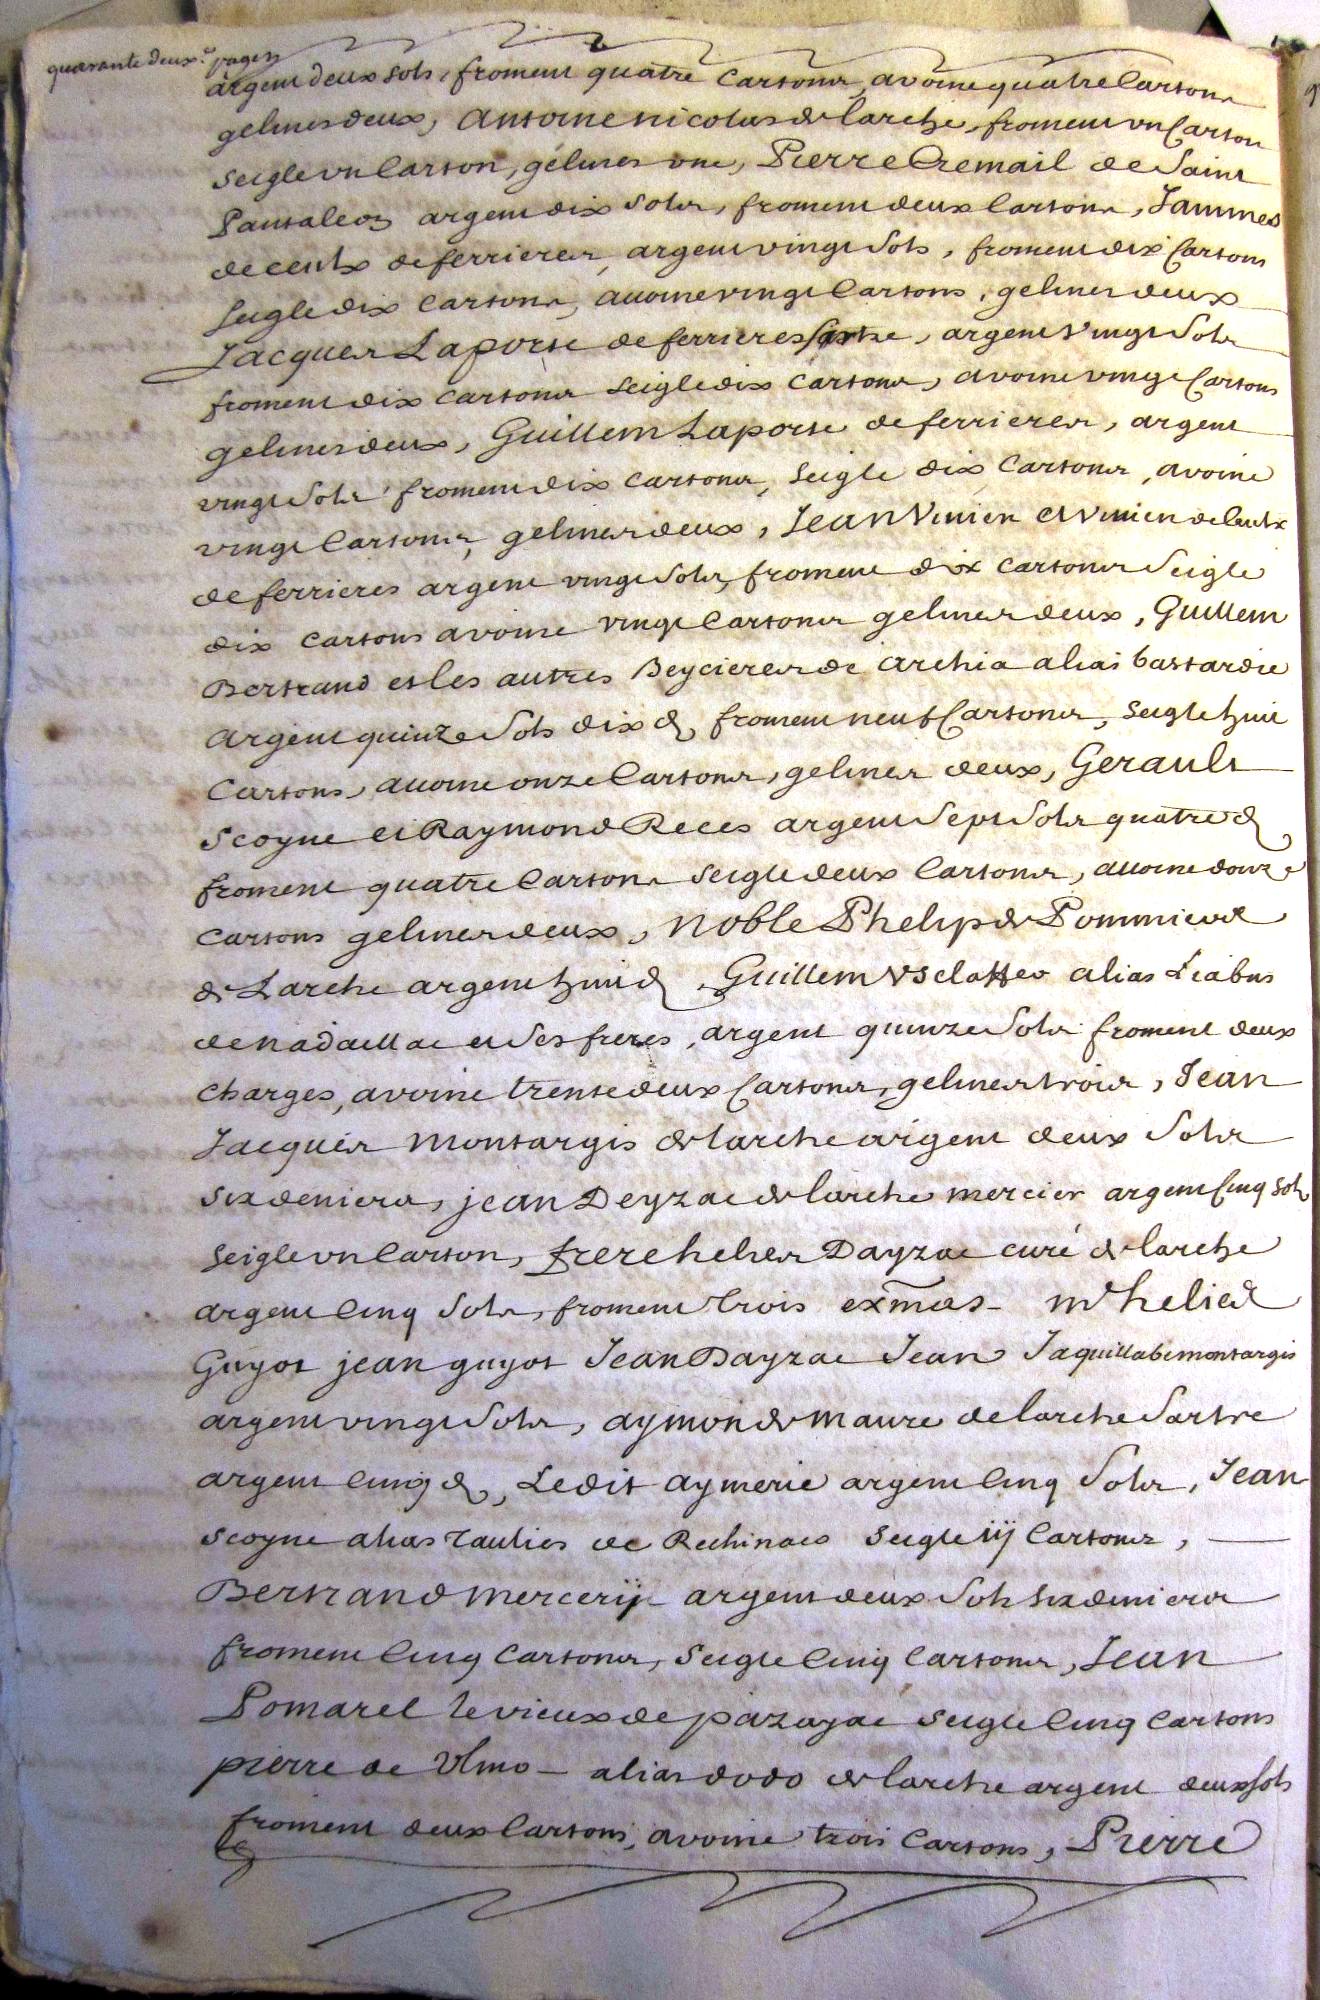 quarante deux.e pages
argent deux sols, froment quatre cartons, avoine quatre Cartons
gelines deux, Antoine nicolas de larche, froment un Carton
seigle un Carton, gélines une, Pierre Cremail de Saint
Pantaleon argent dix sols, froment deux Cartons, Jammes
de ceulx de ferrieres, argent vingt sols, froment dix Cartons
seigle dix Cartons, avoine vingt Cartons, gelines deux
Jacques Laporte de ferrieres sartre, argent vingt sols
froment dix cartons seigle dix cartons, avoine vingt Cartons
gelines deux, Guillem Laporte de ferrieres, argent
vingt sols froment dix cartons, seigle dix Cartons, avoine
vingt Cartons, gelines deux, Jean Vinien et Vinien de
de ferrieres argent vingt sols, froment dix cartons seigle
dix cartons avoine vingt Cartons gelines deux, Guillem
Bertrand et les autres Beycieres de archia aliàs bastardie
argent quinze sols dix d, froment neuf Cartons, seigle huit
Cartons, avoine onze Cartons, gelines deux, Gerault
scoyne et Raymond Reces argent sept sols quatre d
froment quatre Cartons seigle deux Cartons, avoine douze
cartons gelines deux, noble Phelip de Pommiers
de Larche argent huit d Guillem alias
de nadaillac et ses freres, argent quinze sols froment deux
charges, avoine trente deux Cartons, gelines trois, Jean
Jacques Montargis de larche argent deux sols
six deniers, jean Deyzac de larche mercier argent Cinq sols
seigle un Carton, frere helies Dayzac curé de larche
argent Cinq sols, froment trois exmas - mr helied
Guyot jean guyot Jean Dayzac Jean Montargis
argent vingt sols, aymon de Maure de larche sartre
argent Cinq d, Ledit aymeric argent Cinq sols, Jean
scoyne alias Taulies de Rechinac seigle iij Cartons,
Bertrand Mercerij argent deux sols six deniers
froment Cinq Cartons, seigle Cinq Cartons, Jean
Pomarel le vieux de pazayac seigle Cinq Cartons
pierre de Ulmo - alias dodo de larche argent deux sols
froment deux Cartons, avoine trois Cartons, Pierre